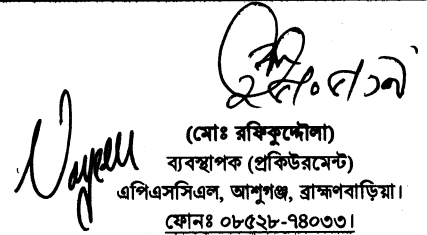 (মোঃ রফিকুদ্দৌলা)
ব্যবস্থাপক (প্রকিউরমেন্ট)
এপিএসসিএল, আশুগঞ্জ, ব্রাহ্মণবাড়িয়া।
ফোনঃ ০৮৫২৮-৭৪০৩৩।